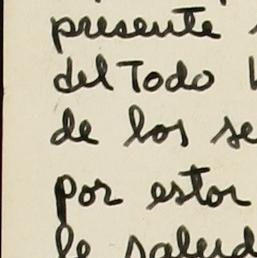 presente
del Todo
de los se
por estor
le salud